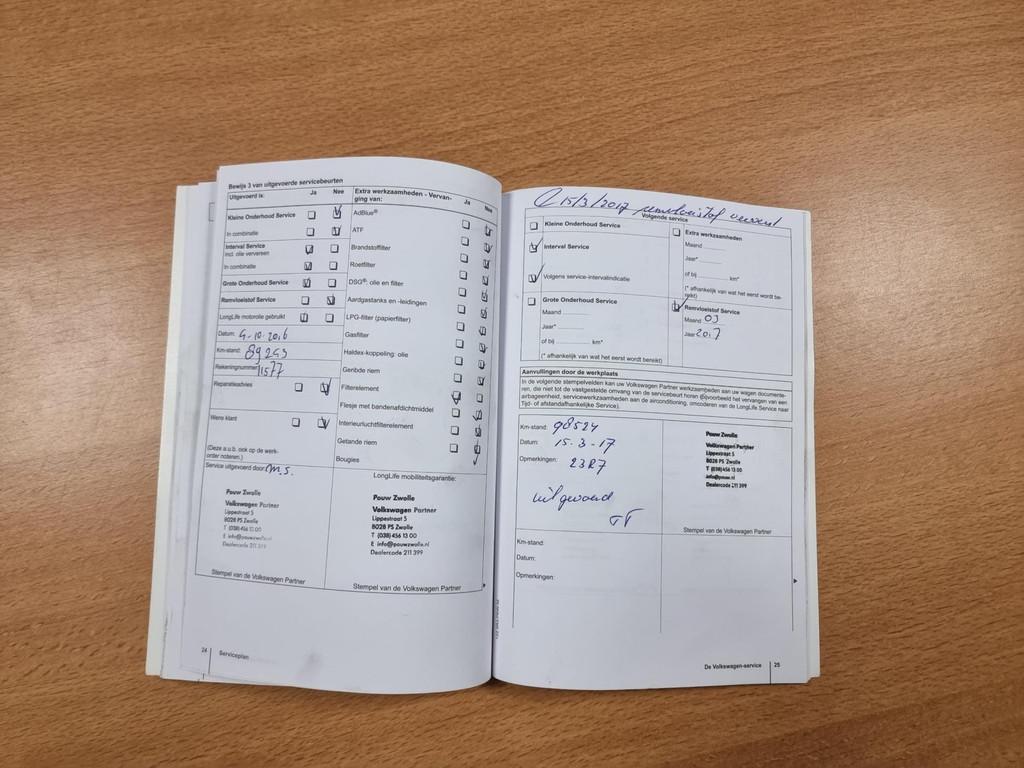 Bewijs 3 van uitgevoerde servicebeurten
Uitgevoerd is: Ja Nee
Kleine Onderhoud Service
In combinatie
Interval Service
incl. olie verversen
In combinatie
Grote Onderhoud Service
Remvloeistof Service
LongLife motorolie gebruikt
Datum: 4-10-2016
Km-stand: 89243
Rekeningnummer: 11577
Reparatieadvies
Wens klant
(Deze a.u.b. ook op de werk-
order noteren.)
Service uitgevoerd door: M.S.
Pouw Zwolle
Volkswagen Partner
Lippestraat 5
8028 PS Zwolle
T (038) 456 13 00
E info@pouwzwolle.nl
Dealercode 211 399
Stempel van de Volkswagen Partner
Extra werkzaamheden - Vervan-
ging van: Ja Nee
AdBlue®
ATF
Brandstoffilter
Roetfilter
DSG®: olie en filter
Aardgastanks en -leidingen
LPG-filter (papierfilter)
Gasfilter
Haldex-koppeling: olie
Geribde riem
Filterelement
Flesje met bandenafdichtmiddel
Interieurluchtfilterelement
Getande riem
Bougies
LongLife mobiliteitsgarantie:
Pouw Zwolle
Volkswagen Partner
Lippestraat 5
8028 PS Zwolle
T (038) 456 13 00
E info@pouwzwolle.nl
Dealercode 211 399
Stempel van de Volkswagen Partner
24 Serviceplan
15/3/2017 remvloeistof ververst
Volgende service
Kleine Onderhoud Service
Interval Service
Volgens service-intervalindicatie
Grote Onderhoud Service
Maand
Jaar*
of bij km*
(* afhankelijk van wat het eerst wordt bereikt)
Extra werkzaamheden
Maand
Jaar*
of bij km*
(* afhankelijk van wat het eerst wordt be-
reikt)
Remvloeistof Service
Maand 03
Jaar 2017
Aanvullingen door de werkplaats
In de volgende stempelvelden kan uw Volkswagen Partner werkzaamheden aan uw wagen documente-
ren, die niet tot de vastgestelde omvang van de servicebeurt horen (bijvoorbeeld het vervangen van een
airbageenheid, servicewerkzaamheden aan de airconditioning, omcoderen van LongLife Service naar
Tijd- of afstandafhankelijke Service).
Km-stand: 98524
Datum: 15-3-17
Opmerkingen: 23R7
uitgevoerd
Pouw Zwolle
Volkswagen Partner
Lippestraat 5
8028 PS Zwolle
T (038) 456 13 00
info@pouw.nl
Dealercode 211 399
Stempel van de Volkswagen Partner
Km-stand:
Datum:
Opmerkingen:
De Volkswagen-service 25